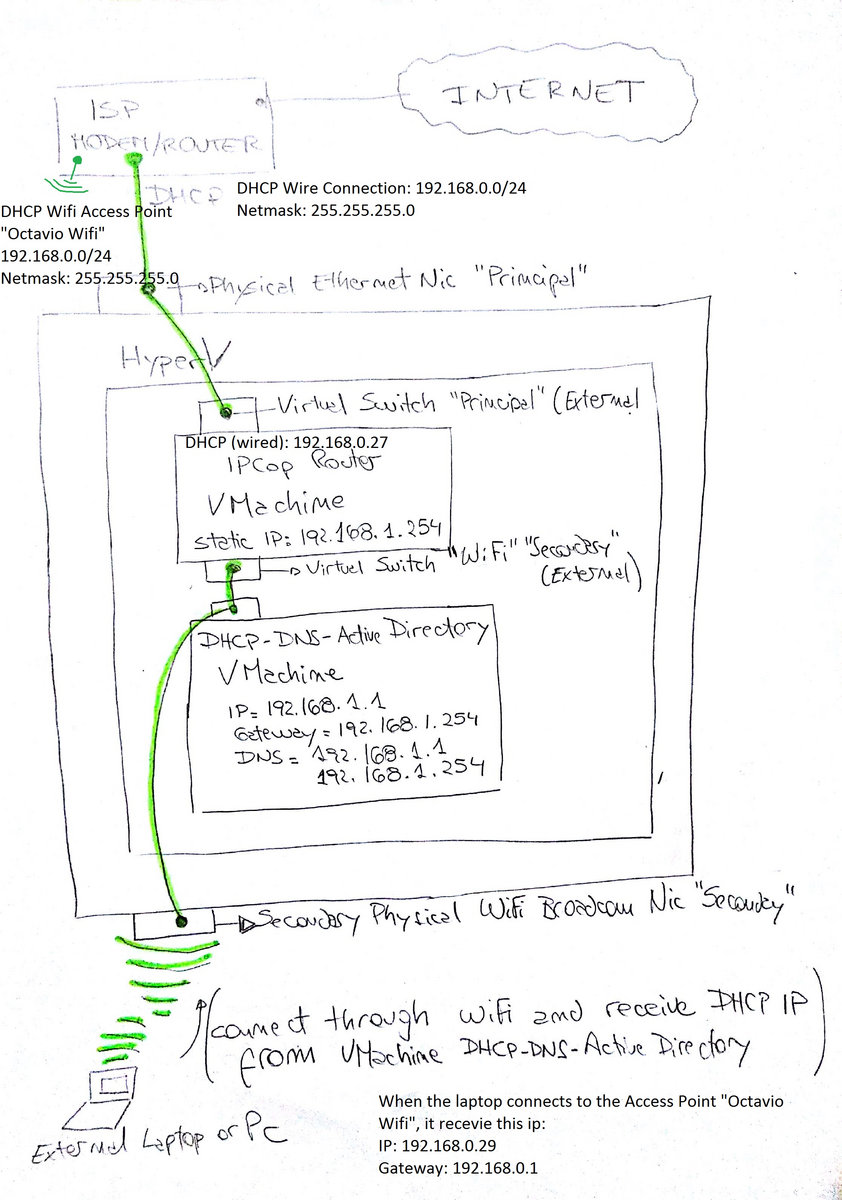 INTERNET
ISP
MODEM/ROUTER
DHCP
DHCP Wire Connection: 192.168.0.0/24
Netmask: 255.255.255.0
DHCP Wifi Access Point
"Octavio Wifi"
192.168.0.0/24
Netmask: 255.255.255.0
Physical Ethernet Nic "Principal"
HyperV
Virtual Switch "Principal" (External
DHCP (wired): 192.168.0.27
IPCop Router
VMachine
static IP: 192.168.1.254
Virtual Switch "WiFi" "Secondary"
(External)
DHCP-DNS-Active Directory
VMachine
IP= 192.168.1.1
Gateway = 192.168.1.254
DNS = 192.168.1.1
192.168.1.254
Secondary Physical WiFi Broadcom Nic "Secondary"
(connect through wifi and receive DHCP IP
from VMachine DHCP-DNS-Active Directory)
When the laptop connects to the Access Point "Octavio
Wifi", it recevie this ip:
IP: 192.168.0.29
Gateway: 192.168.0.1
External Laptop or Pc